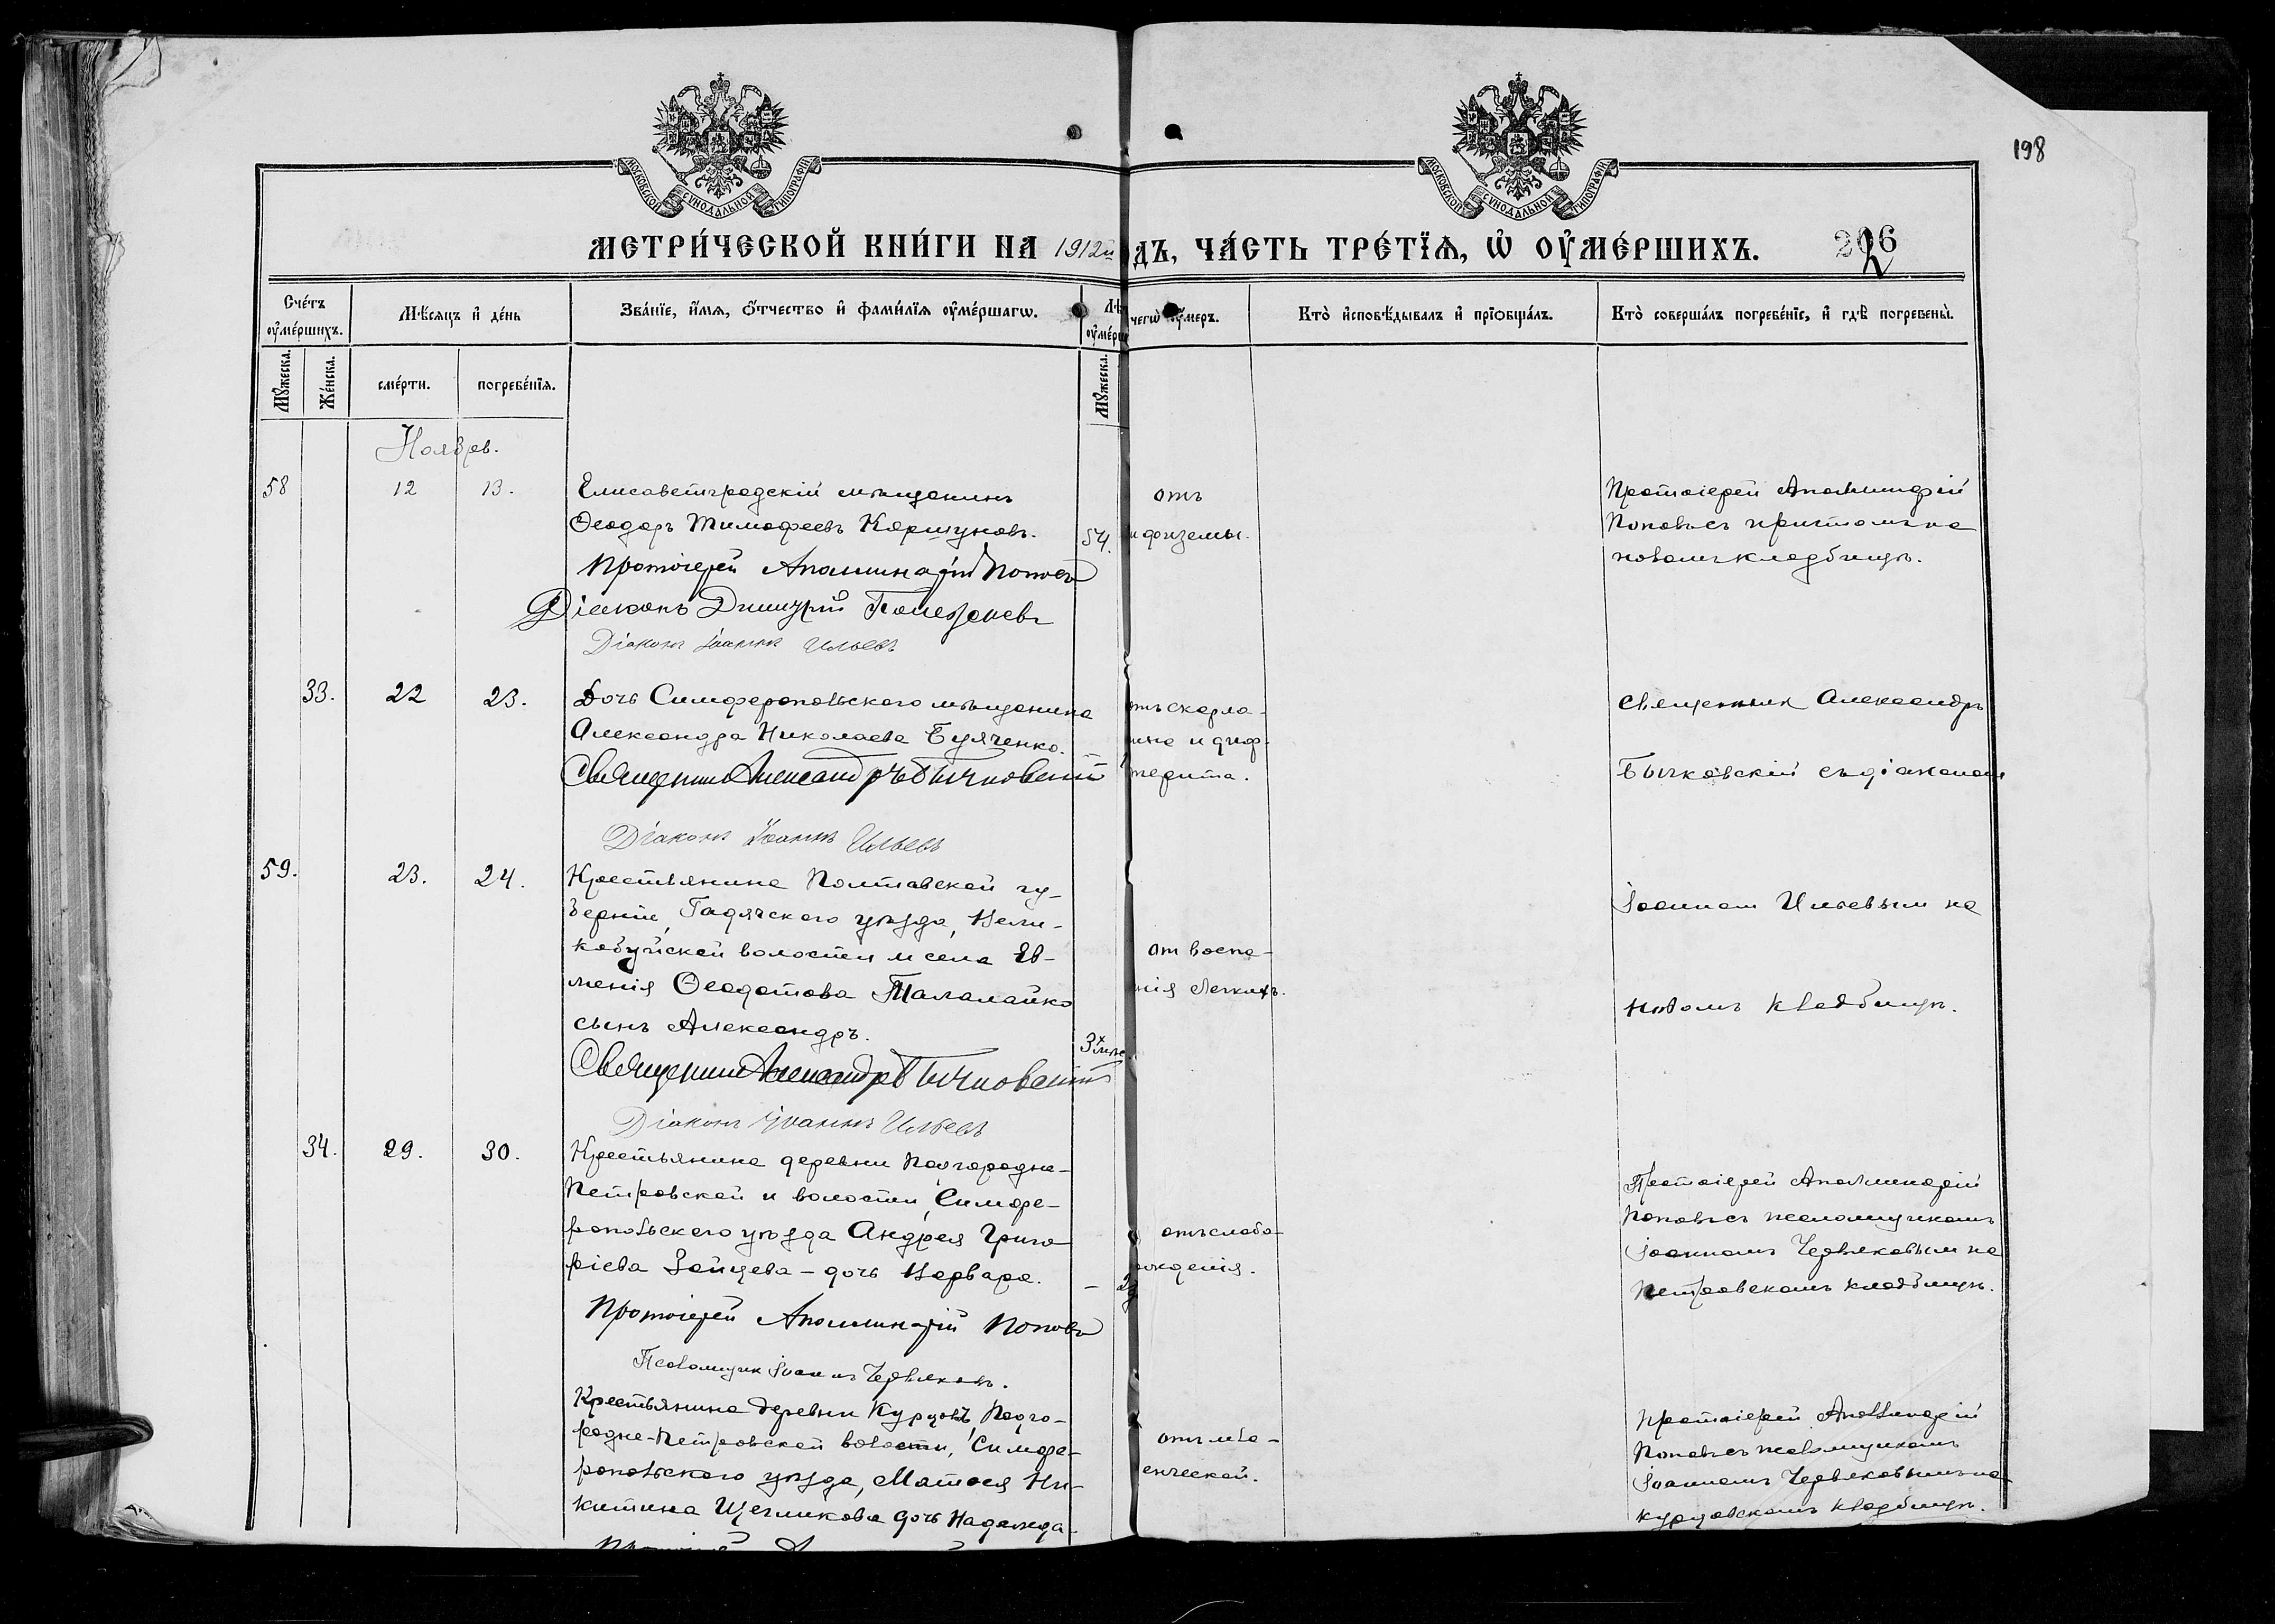 198
МОСКОВСКОЙ СѴНОДАЛЬНОЙ ТИПОГРАФІИ
МОСКОВСКОЙ СѴНОДАЛЬНОЙ ТИПОГРАФІИ
МЕТРИ́ЧЕСКОЙ КНИ́ГИ НА 1912й дъ, ЧА́СТЬ ТРЕ́ТЇѦ, Ѡ҆ ОУ҆МЕ́РШИХЪ.
Сче́тъ оу҆ме́ршихъ.
Мѣ́сяцъ и҆ де́нь
Зва́нїе, и҆́мѧ, ѻ҆́тчество и҆ фами́лїѧ оу҆ме́ршагѡ.
чегѡ̀ оу҆́меръ.
Кто̀ и҆сповѣ́дывалъ и҆ прїѻбща́лъ.
Кто̀ соверша́лъ погребе́нїе, и҆ гдѣ̀ погребены̀.
Мꙋ́жеска.
Же́нска.
сме́рти.
погребе́нїѧ.
Мꙋ́жеска.
Ноябрь.
58 12 13.
Елисаветградскій мѣщанинъ
Ѳеодоръ Тимофеевъ Коршуновъ. 54.
Протоіерей Аполлинарій Поповъ
Діаконъ Димитрій
Діаконъ Іоаннъ Ильевъ
отъ
Протоіерей Аполлинарій
Поповъ съ причтомъ на
новомъ кладбищѣ.
33. 22 23.
Дочь Симферопольскаго мѣщанина
Александра Николаева Бурченко. —
Священникъ Александръ Бычковскій
Діаконъ Іоаннъ Ильевъ
отъ скарла-
тина и диф-
терита.
Священникъ Александръ
Бычковскій съ діакономъ
59. 23. 24.
Крестьянина Полтавской гу-
берніи, Гадячского уѣзда, Вели-
кобуйской волости и села Ев-
менія Ѳеодотова Талалайко
сынъ Александръ.
3х
Священникъ Александръ Бычковскій
Діаконъ Іоаннъ Ильевъ
от воспа-
нія легкихъ.
Іоанном Ильевым на
новомъ кладбищѣ.
34. 29. 30.
Крестьянина деревни Подгородне-
Петровской и волости, Симфе-
ропольскаго уѣзда Андрея Григо-
ріева Зайцева – дочь Варвара. —
Протоіерей Аполлинарій Поповъ
Псаломщик Іоаннъ Червяковъ.
отъ слабо-
рожденія.
Протоіерей Аполлинарій
Поповъ съ псаломщикомъ
Іоанномъ Червяковым на
Петровскомъ кладбищѣ.
Крестьянина деревни Курцовъ Подго-
родне-Петровской волости, Симфе-
ропольскаго уѣзда, Матвея Ни-
китина Щегликова дочь Надежда.
отъ мла-
енческой.
Протоіерей Аполлинарій
Поповъ съ псаломщикомъ
Іоанномъ Червяковымъ на
Курцовскомъ кладбищѣ.